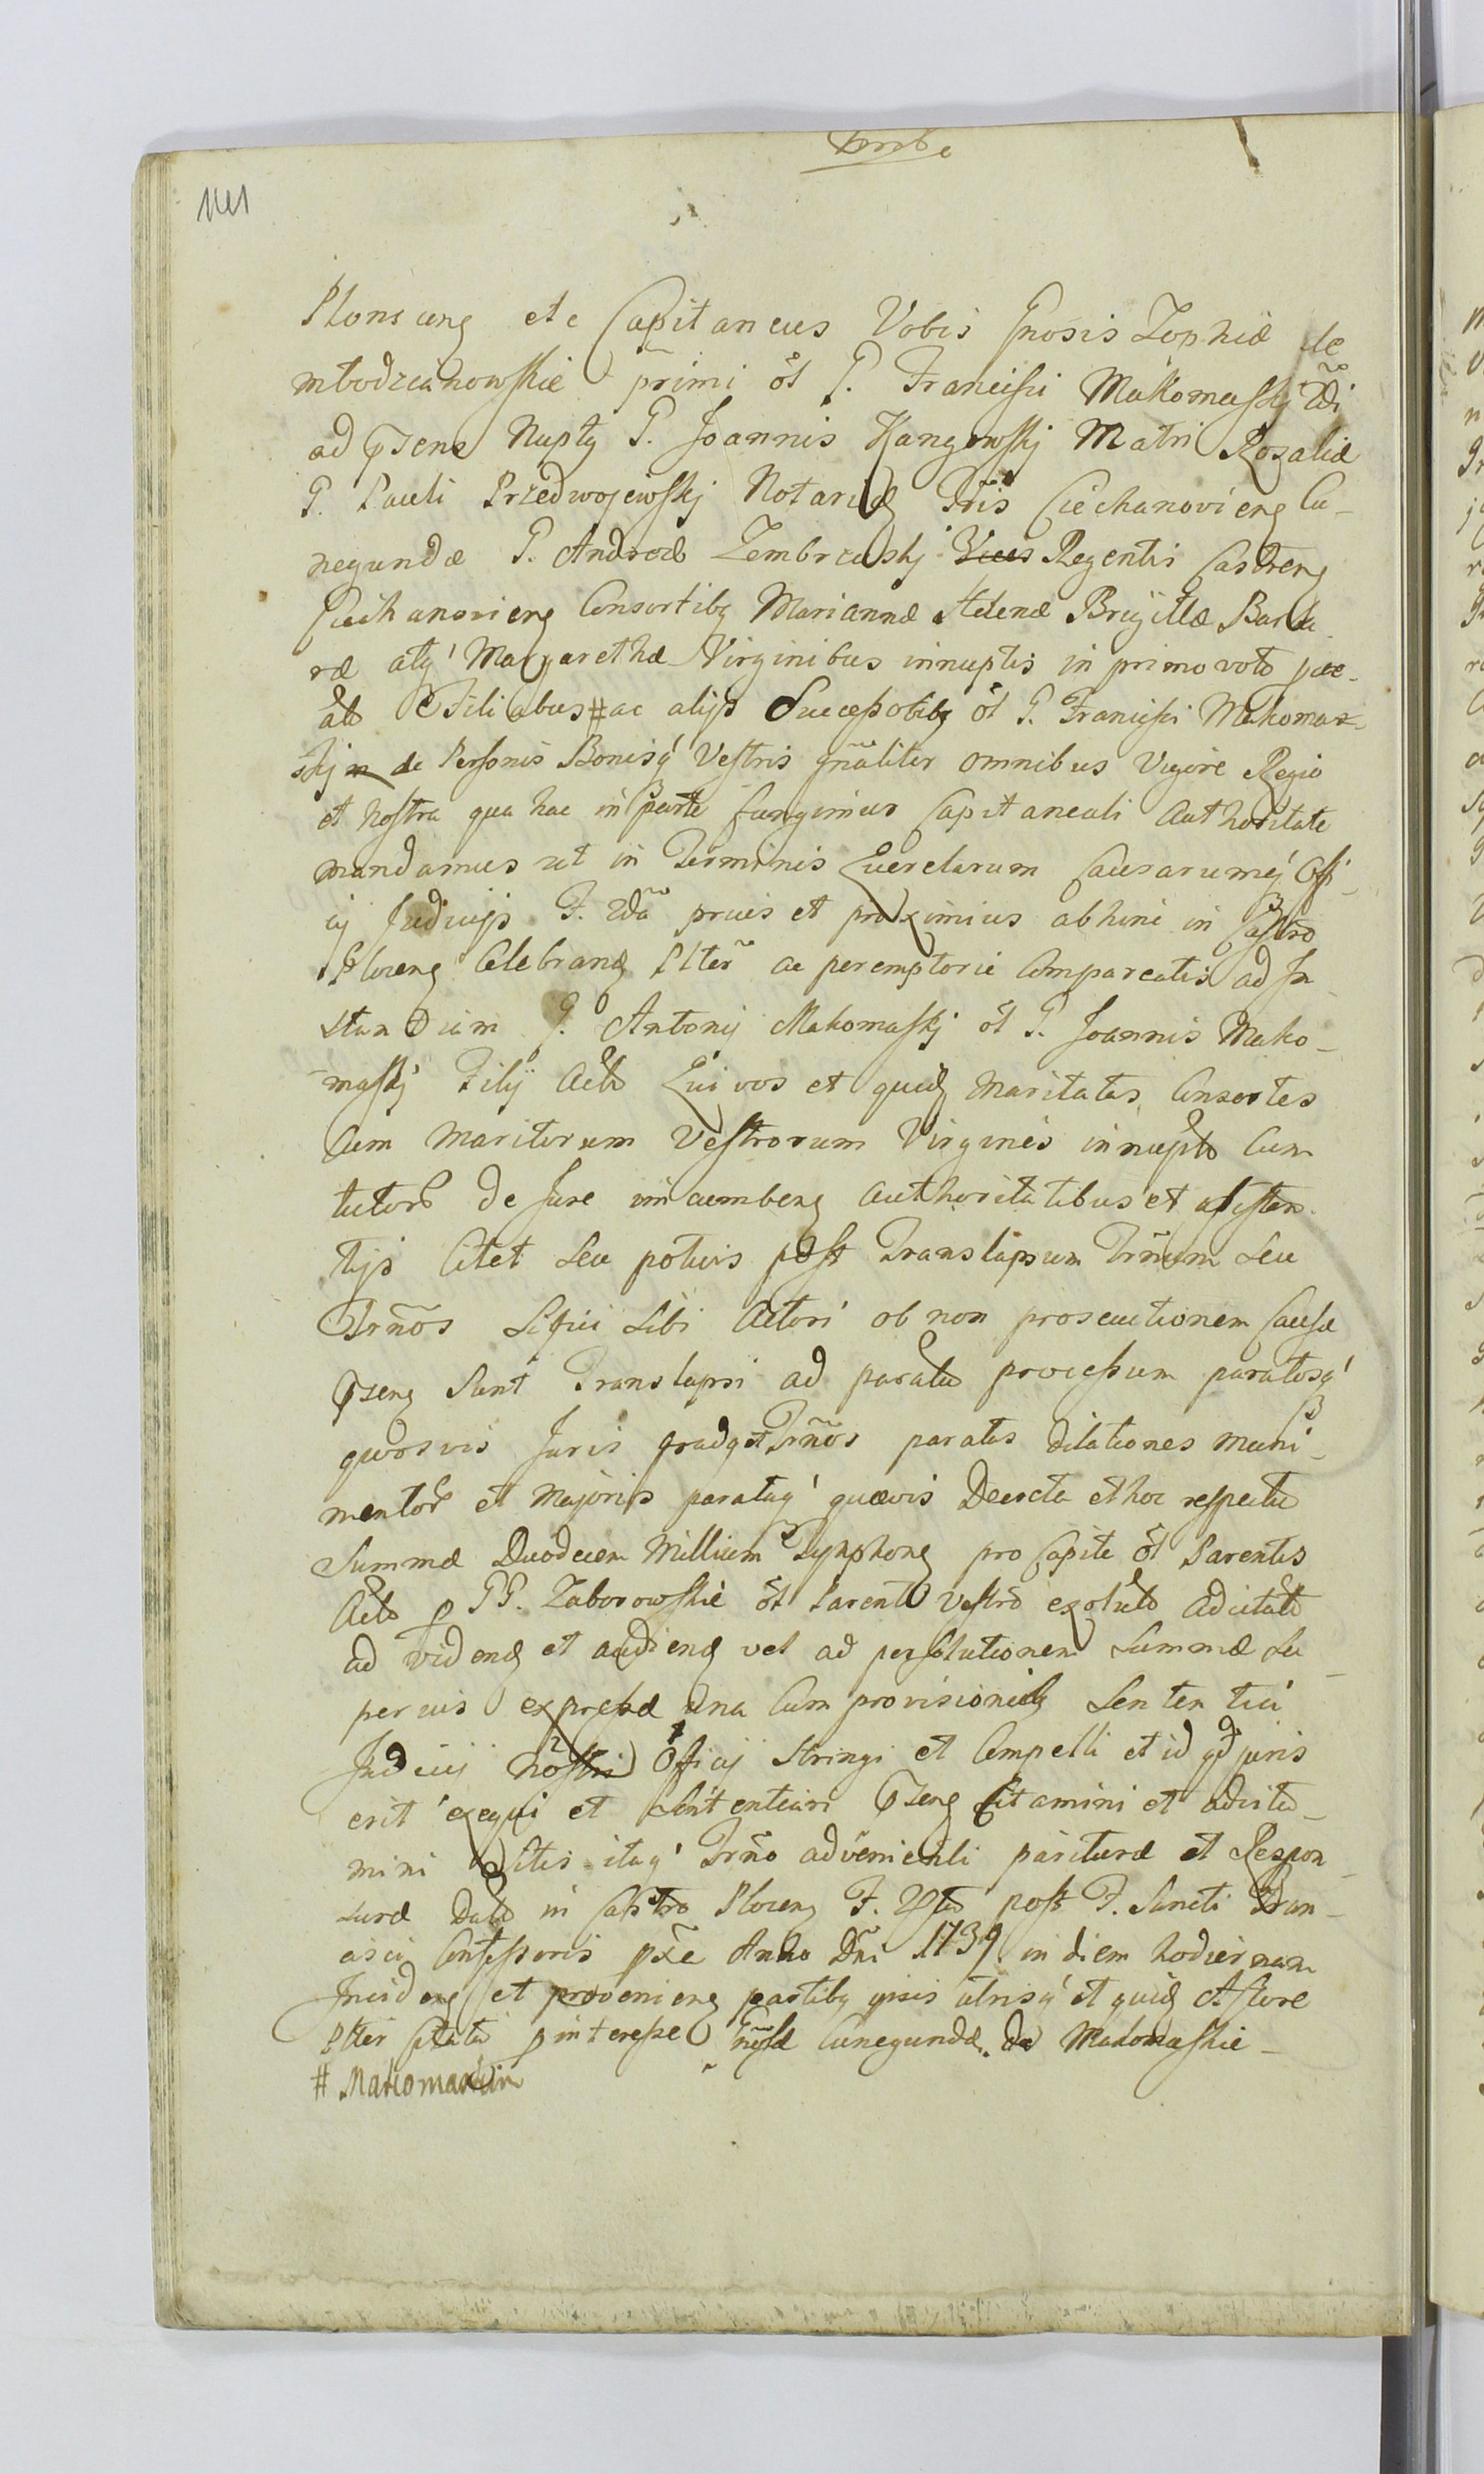 1141
Plonscens etc Capitaneus Vobis Gnosis Zophiæ de
Młodzianowskie primi ol G. Francisci Makomaskj 2di
ad psens Nuptz G. Joannis Kangowskj Matri Rozaliæ
G. Pauli Przedwojewskj Notarij Tris Ciechanoviens Cu-
negundæ G. Andreæ Zembrzuskj Vices Regentis Castrens
Ciechanoviens Consortibq Mariannæ Helenæ Brigittæ Barba
ræ atq Margarethæ Virginibus innuptis in primo voto
Filiabus # ac alijs Successoribq ol G. Francisci Makomas-
skj de Personis Bonisq Vestris gnaliter omnibus Vigore Regio
et Nostra qua hac in parte fungimur Capitaneali Authoritate
mandamus ut in Terminis Querelarum Causarumq Offi-
cij Judicijs F. 2da pruis et proximius abhinc in Castro
Plocens Celebrand Plter ac peremptorie Compareatis ad In
stantiam G. Antonij Makomaskj ol G. Joannis Mako-
maskj Filij Act Qui vos et quid Maritatas Consortes
Cum Maritorum Vestrorum Virgines innupt Cum
tutor de Jure incumbens Authoritatibus et assisten
tijs Citat seu potius post Translapsum Trnum seu
Trnos Siqui Sibi Actori ob non prosecutionem Causæ
psens Sunt Translapsi ad parat processum paratosq
quosvis Juris gradq et Trnos paratas dilationes muni-
mentor et Majoris parataq quævis Decreta et hoc respectu
Summæ Duodecem Millium Tynphons pro Capite ol Parentis
Act p GG. Zaborowskie ol Parent Vestro exolut Adcitat
ad vidend et audiend vel ad persolutionem Summæ Su-
perius expressæ una Cum provisionibq Sententia
Judicij Nostri Officij stringi et Compelli et id qd juris
erit exequi et Sententiari psens Citamini et adcita-
mini Sitis itaq Trno advenienti parituræ et Respon-
suræ Dat in Castro Plocens F. post F. Sancti Fran-
cisci Confessoris pxe Anno Dni 1739 in diem hodiernam
Incidens et proveniens partibq ipsis utrisq et quid Actore
Plter Citata p interesse Gnosæ Cunegundæ de Makomaskie-
# Makomaskim